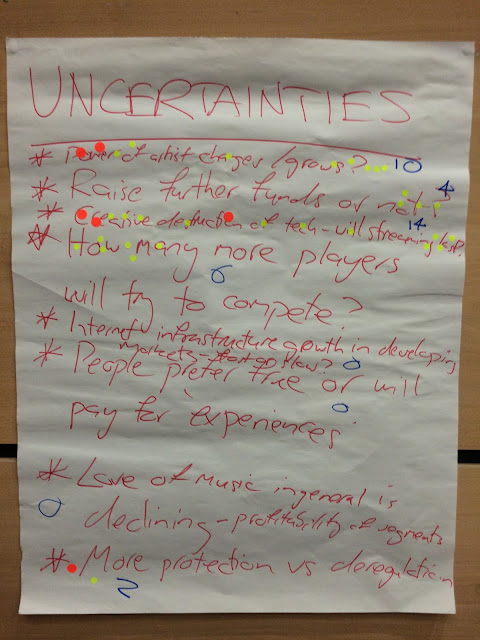 UNCERTAINTIES
* Power of artist changes / grows? 10
* Raise further funds or not? 4
* Creative destruction of tech - will streaming last? 14
* How many more players
6
will try to compete?
* Internet infrastructure growth in developing
markets - fast or slow? 0
* People prefer free or will
0
pay for experiences
* Love of Music in general is
0 declining - profitability of segments
* More protection vs deregulation
2